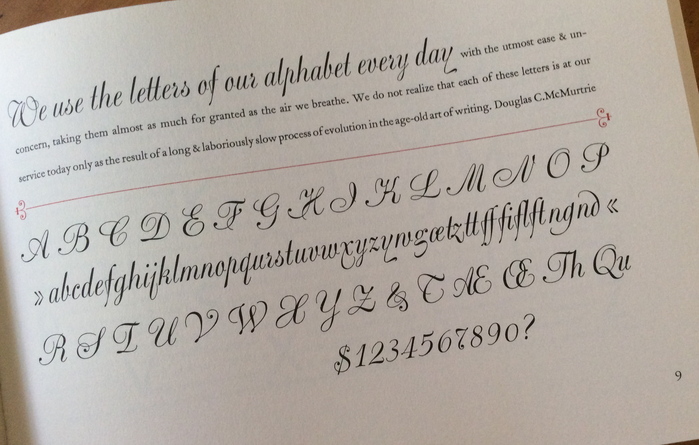 We use the letters of our alphabet every day with the utmost ease & un-
concern, taking them almost as much for granted as the air we breathe. We do not realize that each of these letters is at our
service today only as the result of a long & laboriously slow process of evolution in the age-old art of writing. Douglas C.McMurtrie
A B C D E F G H I K L M N O P
» abcdefghijklmnopqurstuvwxyzyrvgœtzttfffiflftngnd «
R S T U V W X Y Z & T Æ Œ Th Qu
$1234567890?
9